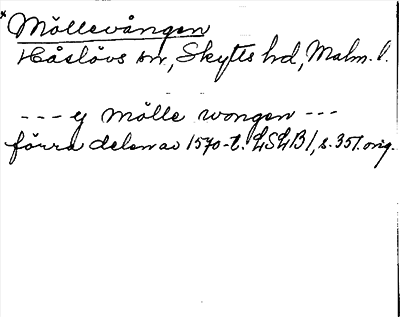 * Möllevången
Håslövs sn, Skytts hd, Malm. l.
--- ej mölle wongen ---
förra delen av 1570-t. LSLB 1, s. 351. orig.